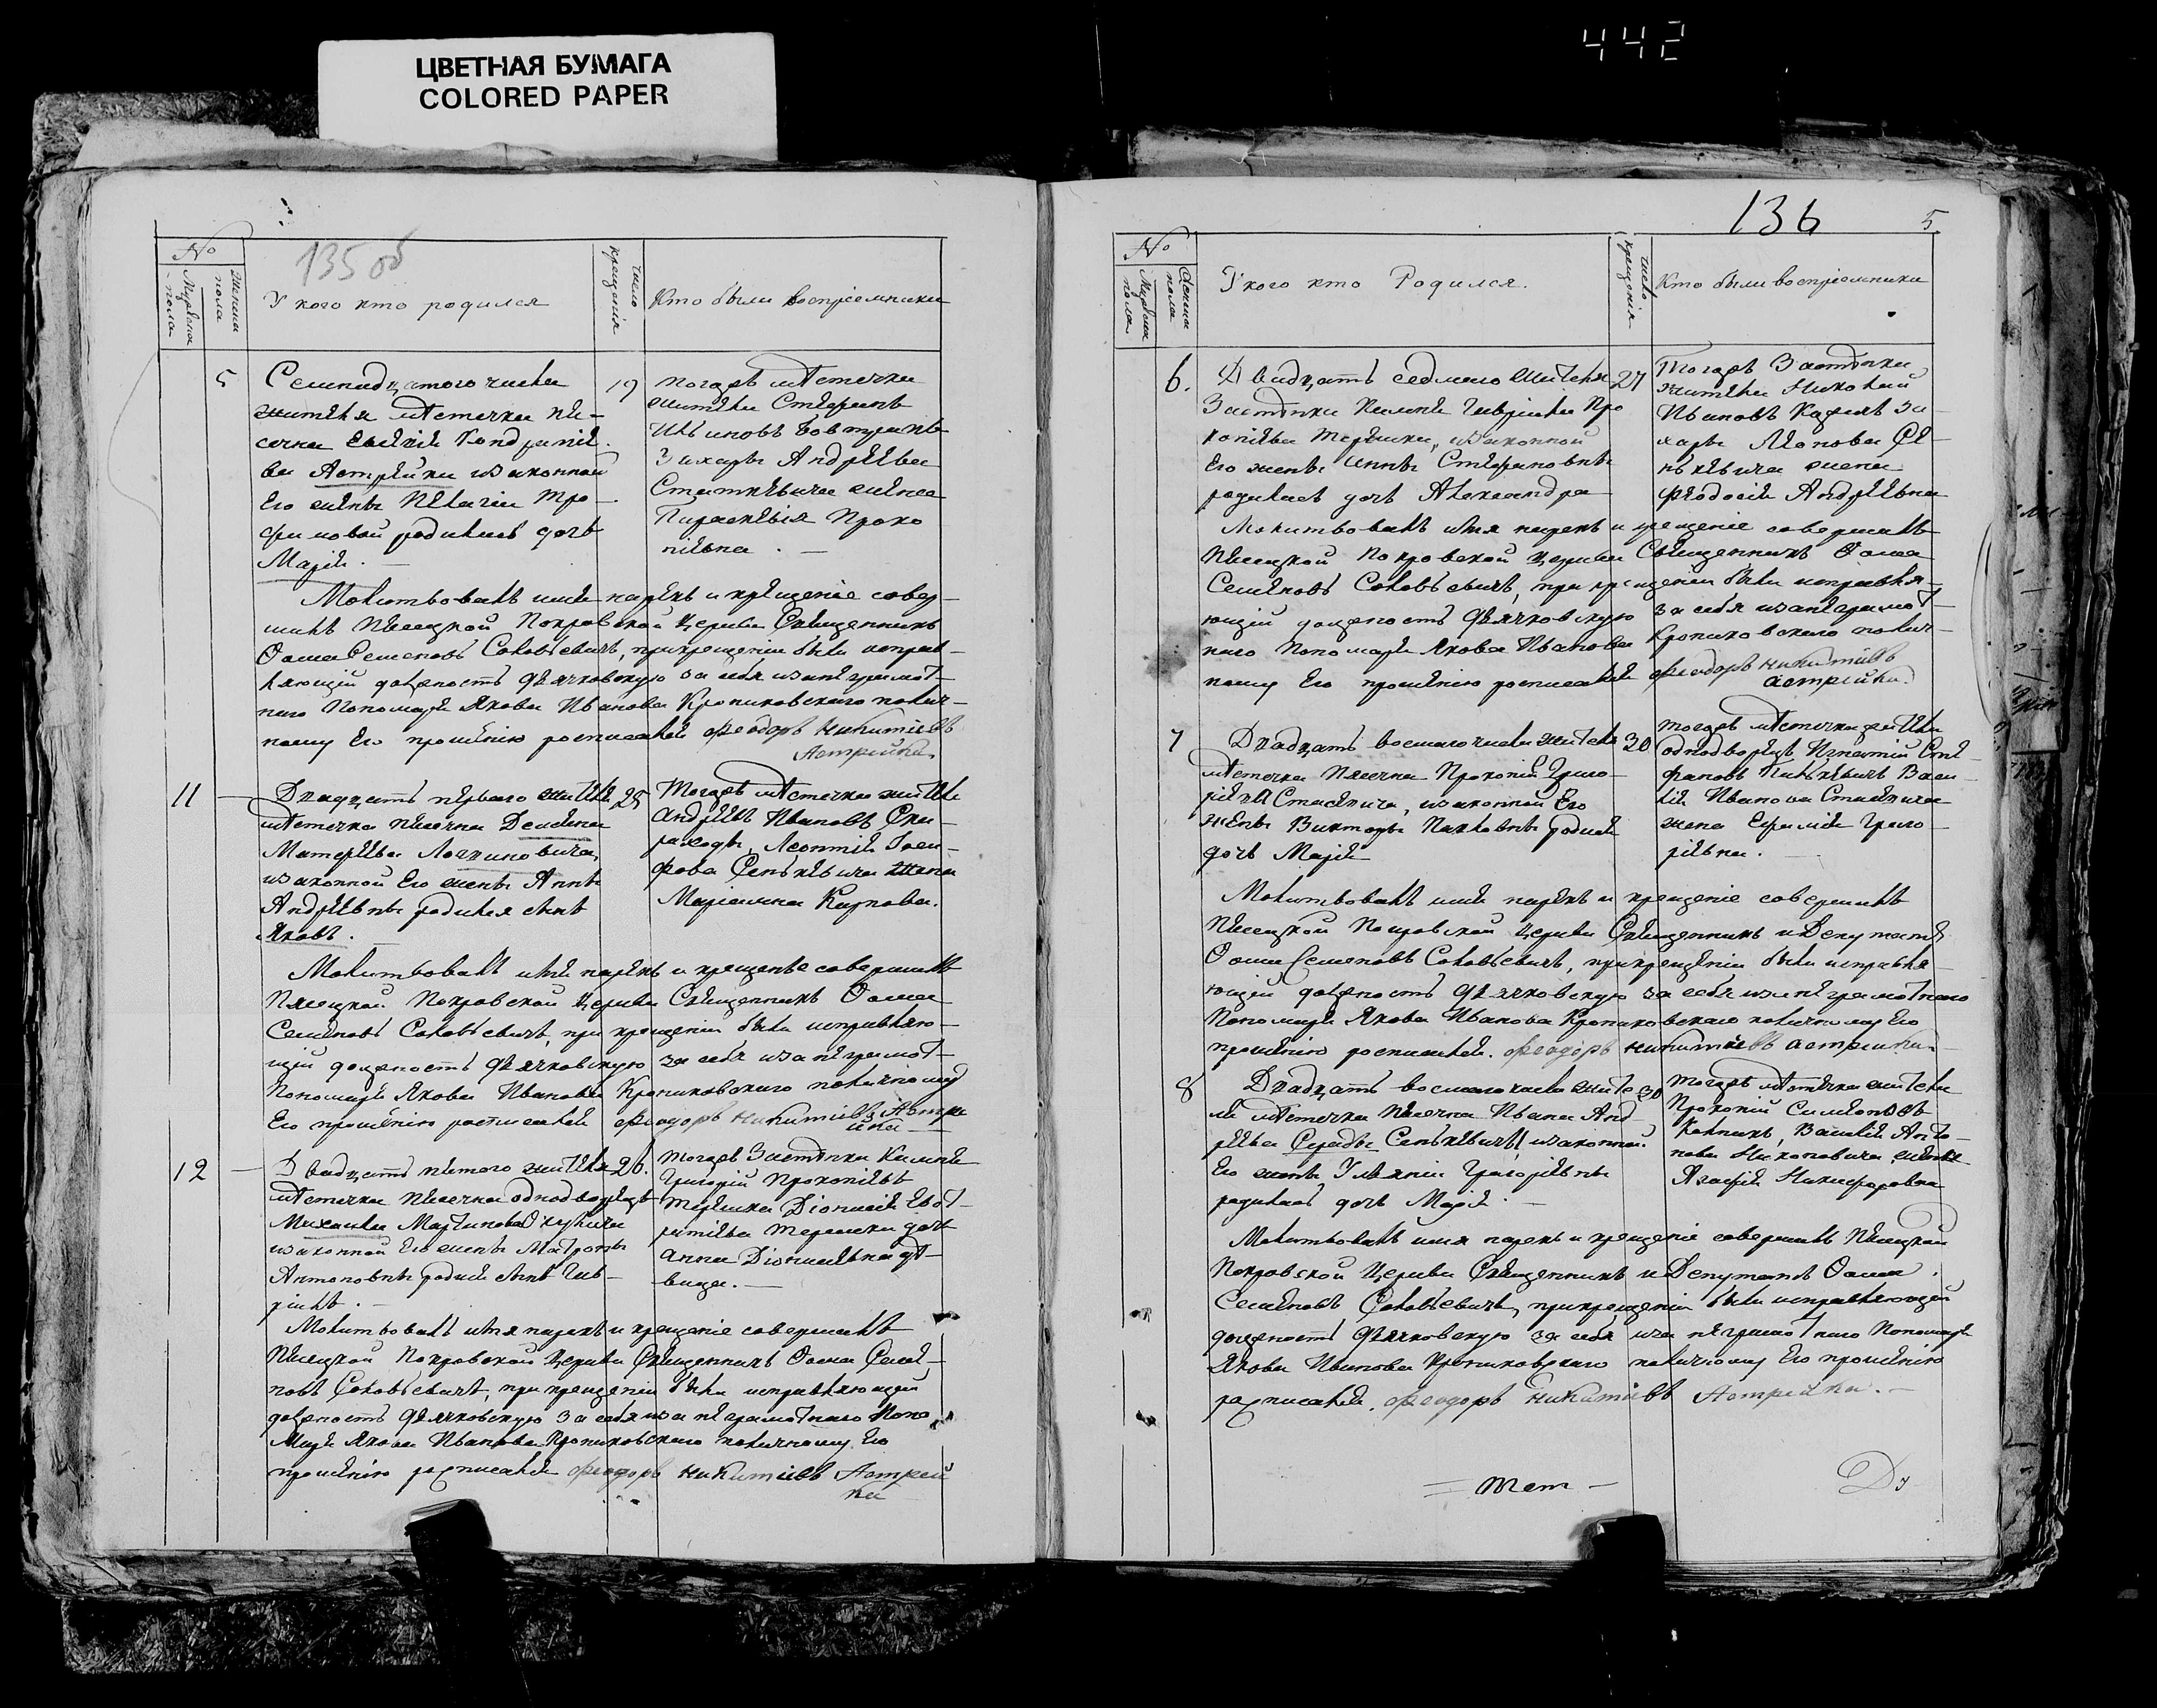 ЦВЕТНАЯ БУМАГА
COLORED PAPER
442
135 об
№
Мужеска пола
Женска пола
У кого кто родился
число крещенія
Кто были воспріемники
5
Семнадцатого числа
жителя мѣстечка Пѣ-
сочна
ва Астрейки изаконной
Его жены Пелагіи Тро-
фимовой родилась дочь
Марія.
19
тогожъ мѣстечка
жители Стефанъ
Захаръ Андреева
Сташкѣвича жена
Параскевія Проко
піевна.
Молитвовалъ имя нарекъ и крещеніе совер-
шилъ Пѣсецкой Покровской Церкви Священникъ
Ѳома Семеновъ Соловьевичъ, прикрещеніи были исправ-
ляющій должность Дьячковскую за себя изанеграмот-
наго Пономаря Якова Иванова Кропиковскаго полич-
ному Его прошенію росписался Феодоръ Никитіевъ
Астрейка.
11
Двадцать перваго жителя
мѣстечка Пѣсечна Демьяна
Матфеева Логиновича,
изаконной Его жены Анны
Андреевны родился сынъ
Яковъ.
25
Тогожъ мѣстечка жители
Андрей Ивановъ Ска-
раходъ, Леонтія Іоси-
фова Сенкѣвича жена
Маріанна Карпова.
Молитвовалъ имя нарекъ и крещеніе совершилъ
Пясецкой Покровской Церкви Священникъ Ѳома
Семеновъ Соловьевичъ, при крещеніи были исправляю-
щій должность Дьячковскую за себя изанеграмот-
Пономаря Якова Иванова Кропиковскаго поличному
Его прошенію росписался Феодоръ Никитіевъ Астре
йка
12
Двадцать пятого жителя
мѣстечка Пѣсечна однодворца
Михаила Мартинова
изаконной Его жены Матроны
Антоновны родися сынъ Гав-
ріилъ.
26.
Тогожъ Застѣнка Калинъ
Григорій Прокопіевъ
Терешка Діонисій
Терешки дочь
Анна Діонисіевна дѣ-
вица.
Молитвовалъ имя нарекъ и крещеніе совершилъ
Пѣсецкой Покровской Церкви Священникъ Ѳома Семе-
новъ Соловьевичъ, при крещеніи были исправляющій
должность Дьячковскую за себя иза неграмотнаго Поно
маря Якова Иванова Кропиковскаго поличному Его
прошенію росписался Феодоръ Никитіевъ Астрей
ка
136
5.
№
Мужеска пола
Женска пола
У кого кто Родился.
число крещенія
Кто были воспріемники
6.
Двадцать седмаго жителя
Застѣнка Калинъ Гавріила Про
копіева Терешки, изаконной
Его жены Анны Стефановны
родилась дочь Александра
27
Тогожъ Застѣнка
жители Николай
Ивановъ Кадилъ За-
хары Леонова Се-
нькевича жена
Феодосія Андреевна
Молитвовалъ имя нарекъ и крещеніе совершилъ
Пѣсецкой Покровской Церкви Священникъ Ѳома
Семеновъ Соловьевичъ, при крещеніи были исправля-
ющій должность Дьячковскую за себя изанеграмот-
наго Пономаря Якова Иванова Кропиковскаго полич-
ному Его прошенію росписался Феодоръ Никитіевъ
Астрейка.
7
Двадцать восмаго числа жителя
мѣстечка Пясечна Прокопія Григо-
ріева Стасевича, изаконной Его
жены Викторы Павловны родися
дочь Марія
30
тогожъ мѣстечка жители
однодворецъ Игнатій Сте-
фановъ Васи-
лія Иванова Стасевича
жена Евфимія Григо-
ріевна.
Молитвовалъ имя нарекъ и крещеніе совершилъ
Пѣсецкой Покровской Церкви Священникъ и Депутатъ
Ѳома Семеновъ Соловьевичъ, прикрещеніи были исправля-
ющій должность Дьячковскую за себя изанеграмотнаго
Пономаря Якова Иванова Кропиковскаго поличному Его
прошенію росписался. Феодоръ Никитіевъ Астрейка
8
Двадцать восмаго числа жите
ля мѣстечка Пѣсечна Ивана Анд-
реева Сенкѣвича изаконной
Его жены Уліяніи Григоріевны
родилась дочь Марія.
30
тогожъ мѣстечка жители
Прокопій Симеоновъ
Колпакъ, Василія Анто-
нова жена
Агафія Никифоровна
Молитвовалъ имя нарекъ и крещеніе совершилъ Пѣсецкой
Покровской Церкви Священникъ и Депутатъ Ѳома
Семеновъ Соловьевичъ, прикрещеніи были исправляющій
должность Дьячковскую за себя иза неграмотнаго Пономаря
Якова Иванова Кропиковскаго поличному Его прошенію
росписался. Феодоръ Никитіевъ Астрейка.